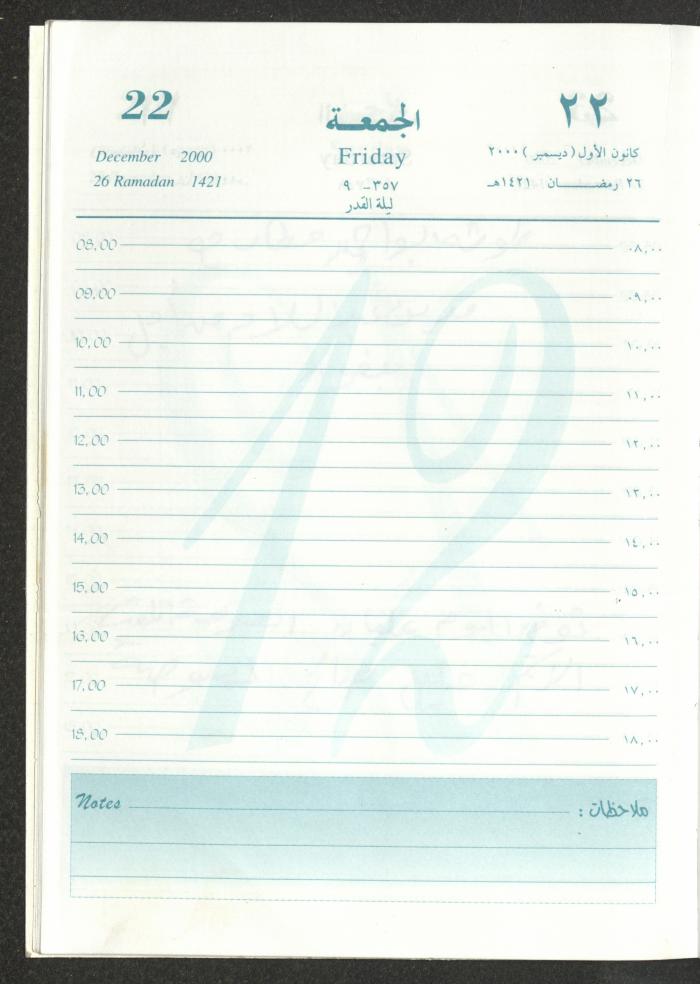 22
الجمعة
٢٢
December 2000
Friday
كانون الأول (ديسمبر) ٢٠٠٠
26 Ramadan 1421
٣٥٧ - ٩
٢٦ رمضـــــــان ١٤٢١هـ
ليلة القدر
12
08,00 ٠٨,٠٠
09,00 ٠٩,٠٠
10,00 ١٠,٠٠
11,00 ١١,٠٠
12,00 ١٢,٠٠
13,00 ١٣,٠٠
14,00 ١٤,٠٠
15,00 ١٥,٠٠
16,00 ١٦,٠٠
17,00 ١٧,٠٠
18,00 ١٨,٠٠
Notes ملاحظات :